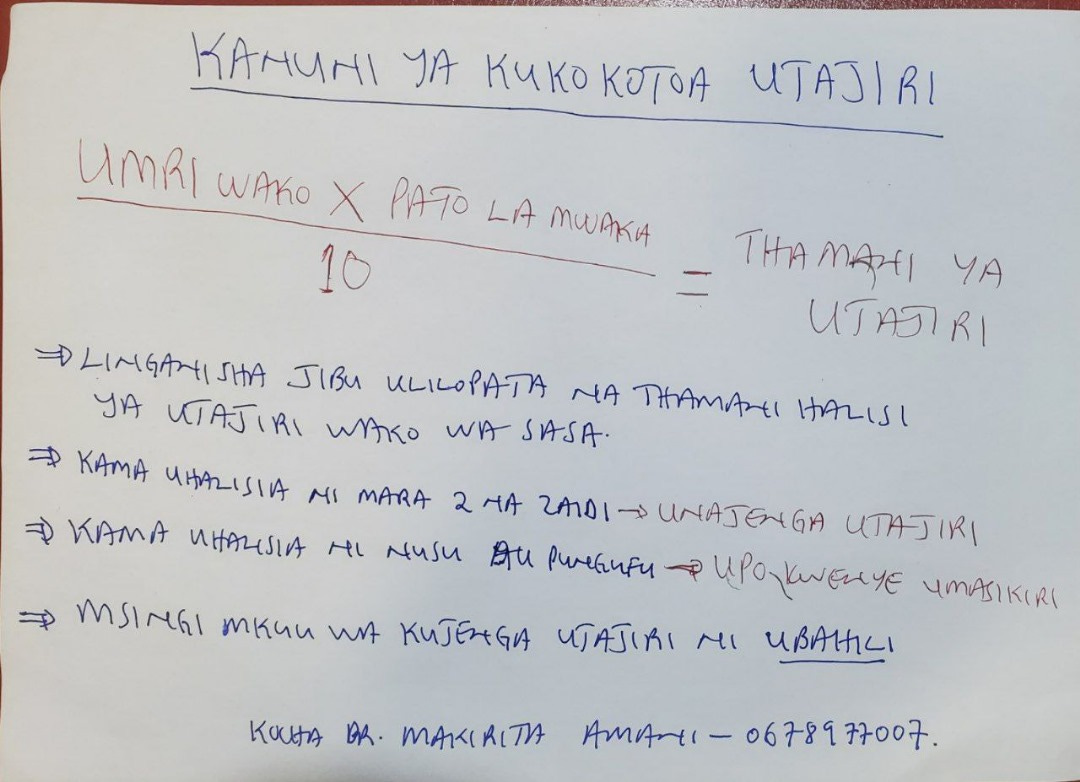 KANUNI YA KUKOKOTOA UTAJIRI
UMRI WAKO X PATO LA MWAKA
10
= THAMANI YA
UTAJIRI
⇒ LINGANISHA JIBU ULILOPATA NA THAMANI HALISI
YA UTAJIRI WAKO WA SASA.
⇒ KAMA UHALISIA NI MARA 2 NA ZAIDI → UNAJENGA UTAJIRI
⇒ KAMA UHALISIA NI NUSU AU PUNGUFU → UPO KWENYE UMASIKIRI
⇒ MSINGI MKUU WA KUJENGA UTAJIRI NI UBAHILI
KOCHA DR. MAKIRITA AMANI - 0678977007.